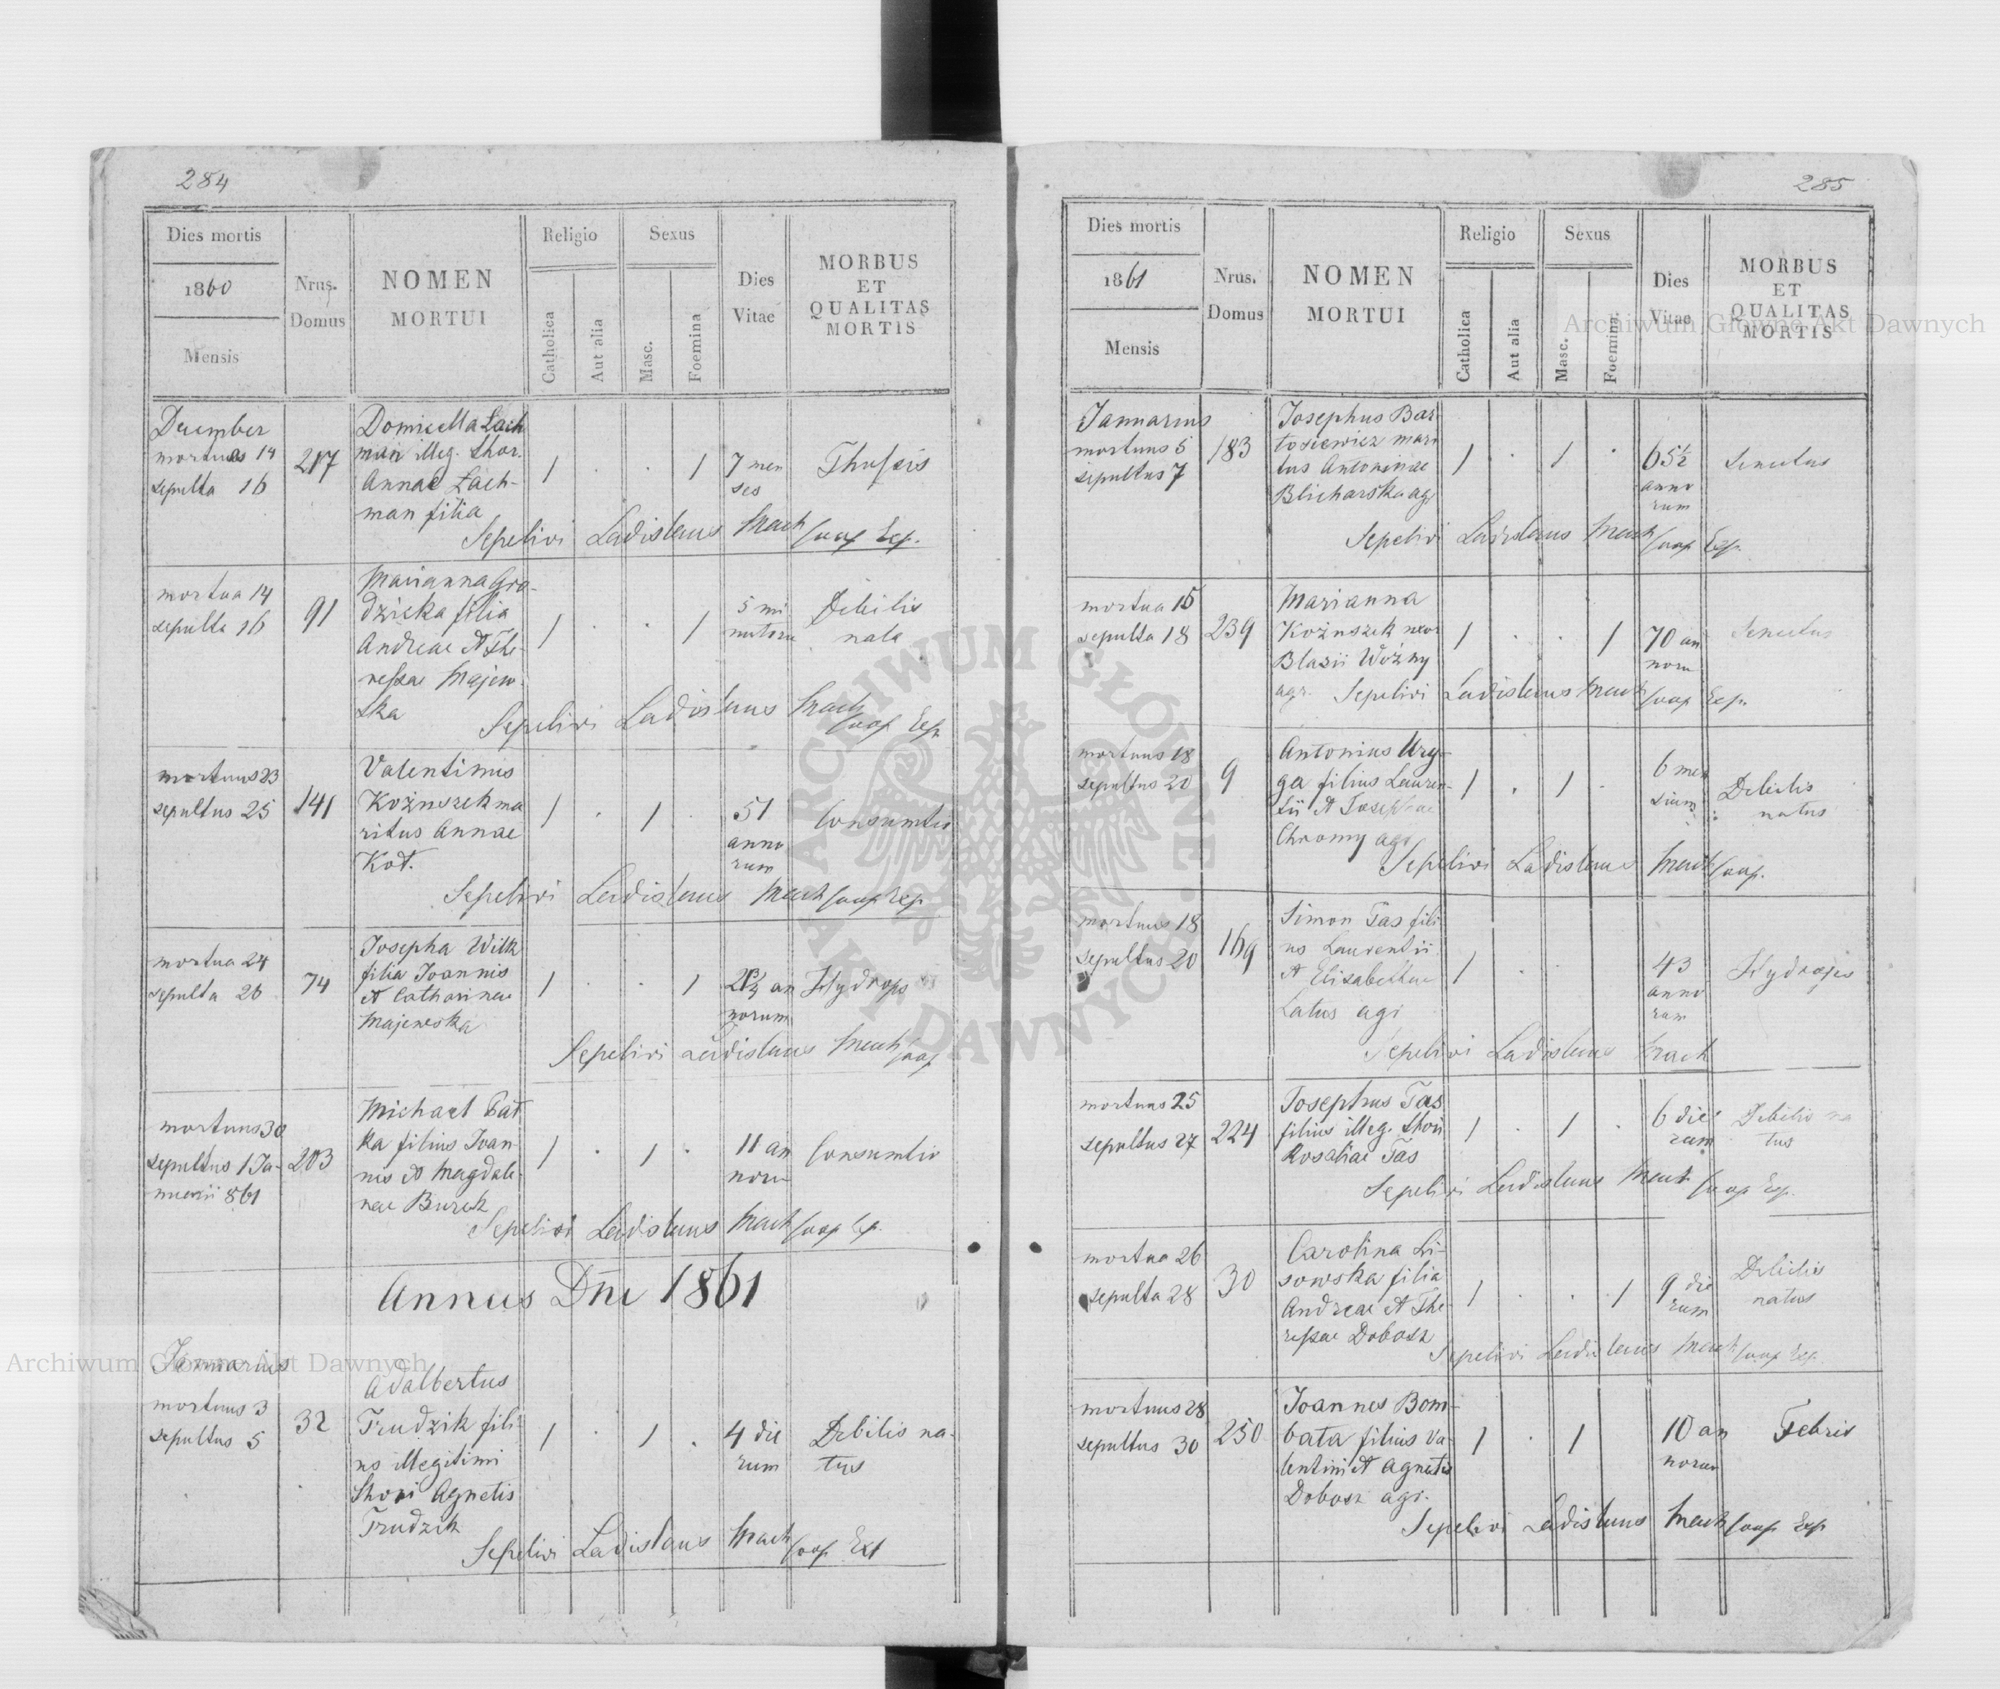 284
Dies mortis
1860
Mensis
Nrus.
Domus
NOMEN
MORTUI
Religio
Catholica
Aut alia
Sexus
Masc.
Foemina
Dies
Vitae
MORBUS
ET
QUALITAS
MORTIS
December
mortuus 14
sepulta 16
217
Domicella Lach
man illeg. thor.
Annae Lach-
man filia
1 . . 1
7 men
ses
Thyssis
Sepelivi Ladislaus Mach Coop Exp.
mortua 14
sepulta 16
91
Marianna Gro-
dzicka filia
Andreae et The-
ressae Majew-
ska
1 . . 1
5 mi
nutoru
Debilis
nata
Sepelivi Ladislaus Mach Coop Exp
mortuus 23
sepultus 25
141
Valentinus
Kożuszek ma
ritus Annae
Kot.
1 . 1 .
51
anno
rum
Consumtio
Sepelivi Ladislaus Mach Coop Exp
mortua 24
sepulta 26
74
Josepha Wilk
filia Joannis
et Catharinae
Majewska
1 . . 1
an
norum
Hydrops
Sepelivi Ladislaus Mach Coop
mortuus 30
sepultus 1 Ja-
nuarii 861
203
Michael Bat
ka filius Joan-
nis et Magdale-
nae Burek
1 . 1 .
11 an
noru
Consumtio
Sepelivi Ladislaus Mach Coop Exp.
Annus Dni 1861
Januarius
mortuus 3
sepultus 5
32
Adalbertus
Trudzik fili-
us illegitimi
thori Agnetis
Trudzik
1 . 1 .
4 die
rum
Debilis na-
tus
Sepelivi Ladislaus Mach Coop Ext
285
Dies mortis
1861
Mensis
Nrus.
Domus
NOMEN
MORTUI
Religio
Catholica
Aut alia
Sexus
Masc.
Foemina
Dies
Vitae
MORBUS
ET
QUALITAS
MORTIS
Januarius
mortuus 5
sepultus 7
183
Josephus Bar
tosiewicz mari
tus Antoninae
Blicharska agr
1 . 1 .
65½
anno
rum
Senectus
Sepelivi Ladislaus Mach Coop Exp.
mortua 16
sepulta 18
239
Marianna
Kożuszek uxor
Blasii Woźny
agr.
1 . . 1
70 an
noru
Senectus
Sepelivi Ladislaus Mach Coop Exp.
mortuus 18
sepultus 20
9
Antonius Ury-
ga filius Lauren-
tii et Josephae
Chromy agr
1 . 1 .
6 men
sium
Debilis
natus
Sepelivi Ladislaus Mach Coop.
mortuus 18
sepultus 20
169
Simon Tas fili
us Laurentii
et Elisabethae
Latus agr
1 .
43
anno
rum
Hydrops
Sepelivi Ladislaus Mach
mortuus 25
sepultus 27
224
Josephus Tas
filius illeg. thori
Rosaliae Tas
1 . 1 .
6 die
rum
Debilis na
tus
Sepelivi Ladislaus Mach Coop Exp.
mortua 26
sepulta 28
30
Carolina Li-
sowska filia
Andreae et The-
ressae Dobosz
1 . . 1
9 die
rum
Debilis
natus
Sepelivi Ladislaus Mach Coop Exp.
mortuus 28
sepultus 30
250
Joannes Bom-
bata filius Va-
lentini et Agnetis
Dobosz agr.
1 . 1
10 an
norum
Febris
Sepelivi Ladislaus Mach Coop Exp
Archiwum Główne Akt Dawnych
Archiwum Główne Akt Dawnych
ARCHIWUM GŁÓWNE AKT DAWNYCH